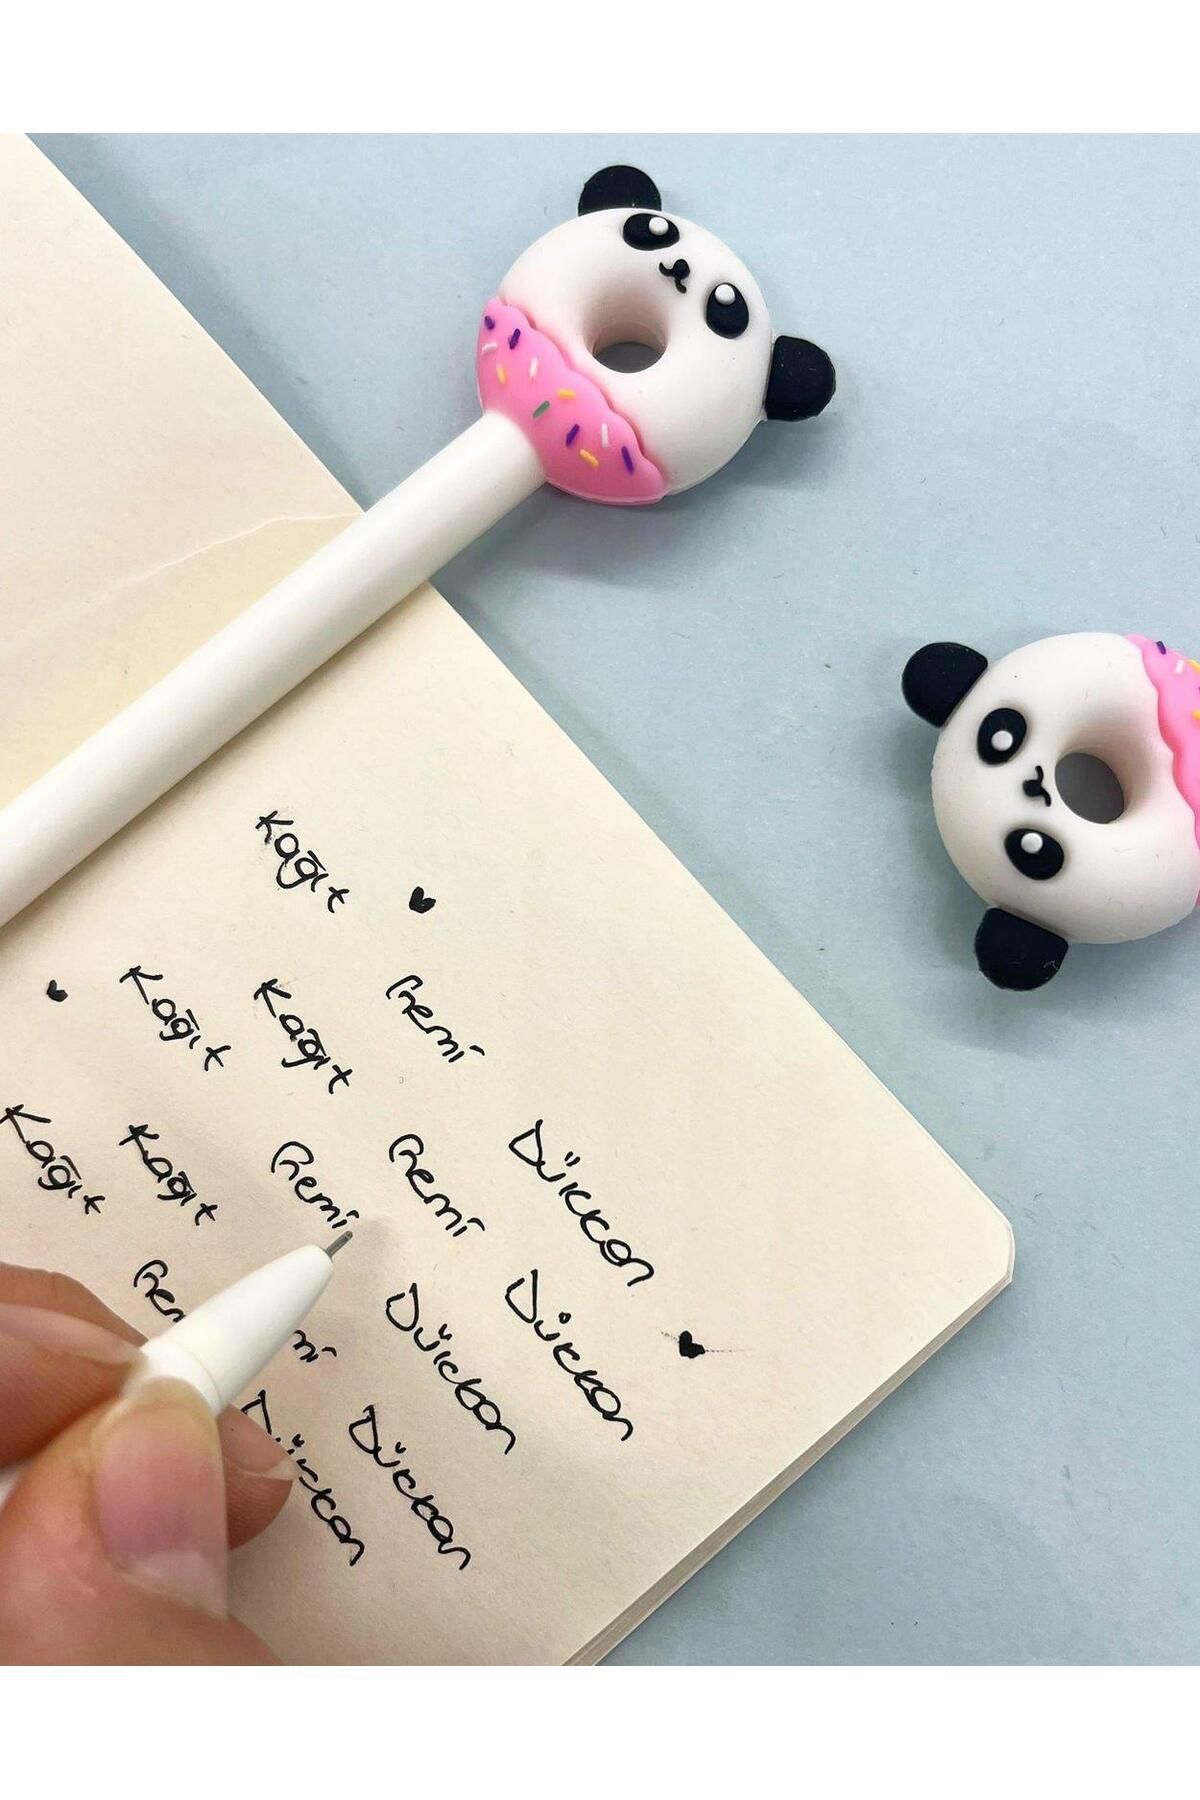 Kağıt Gemi Dükkan
Kağıt Gemi Dükkan
Kağıt Gemi Dükkan
Kağıt Dükkan
Kağıt Dükkan